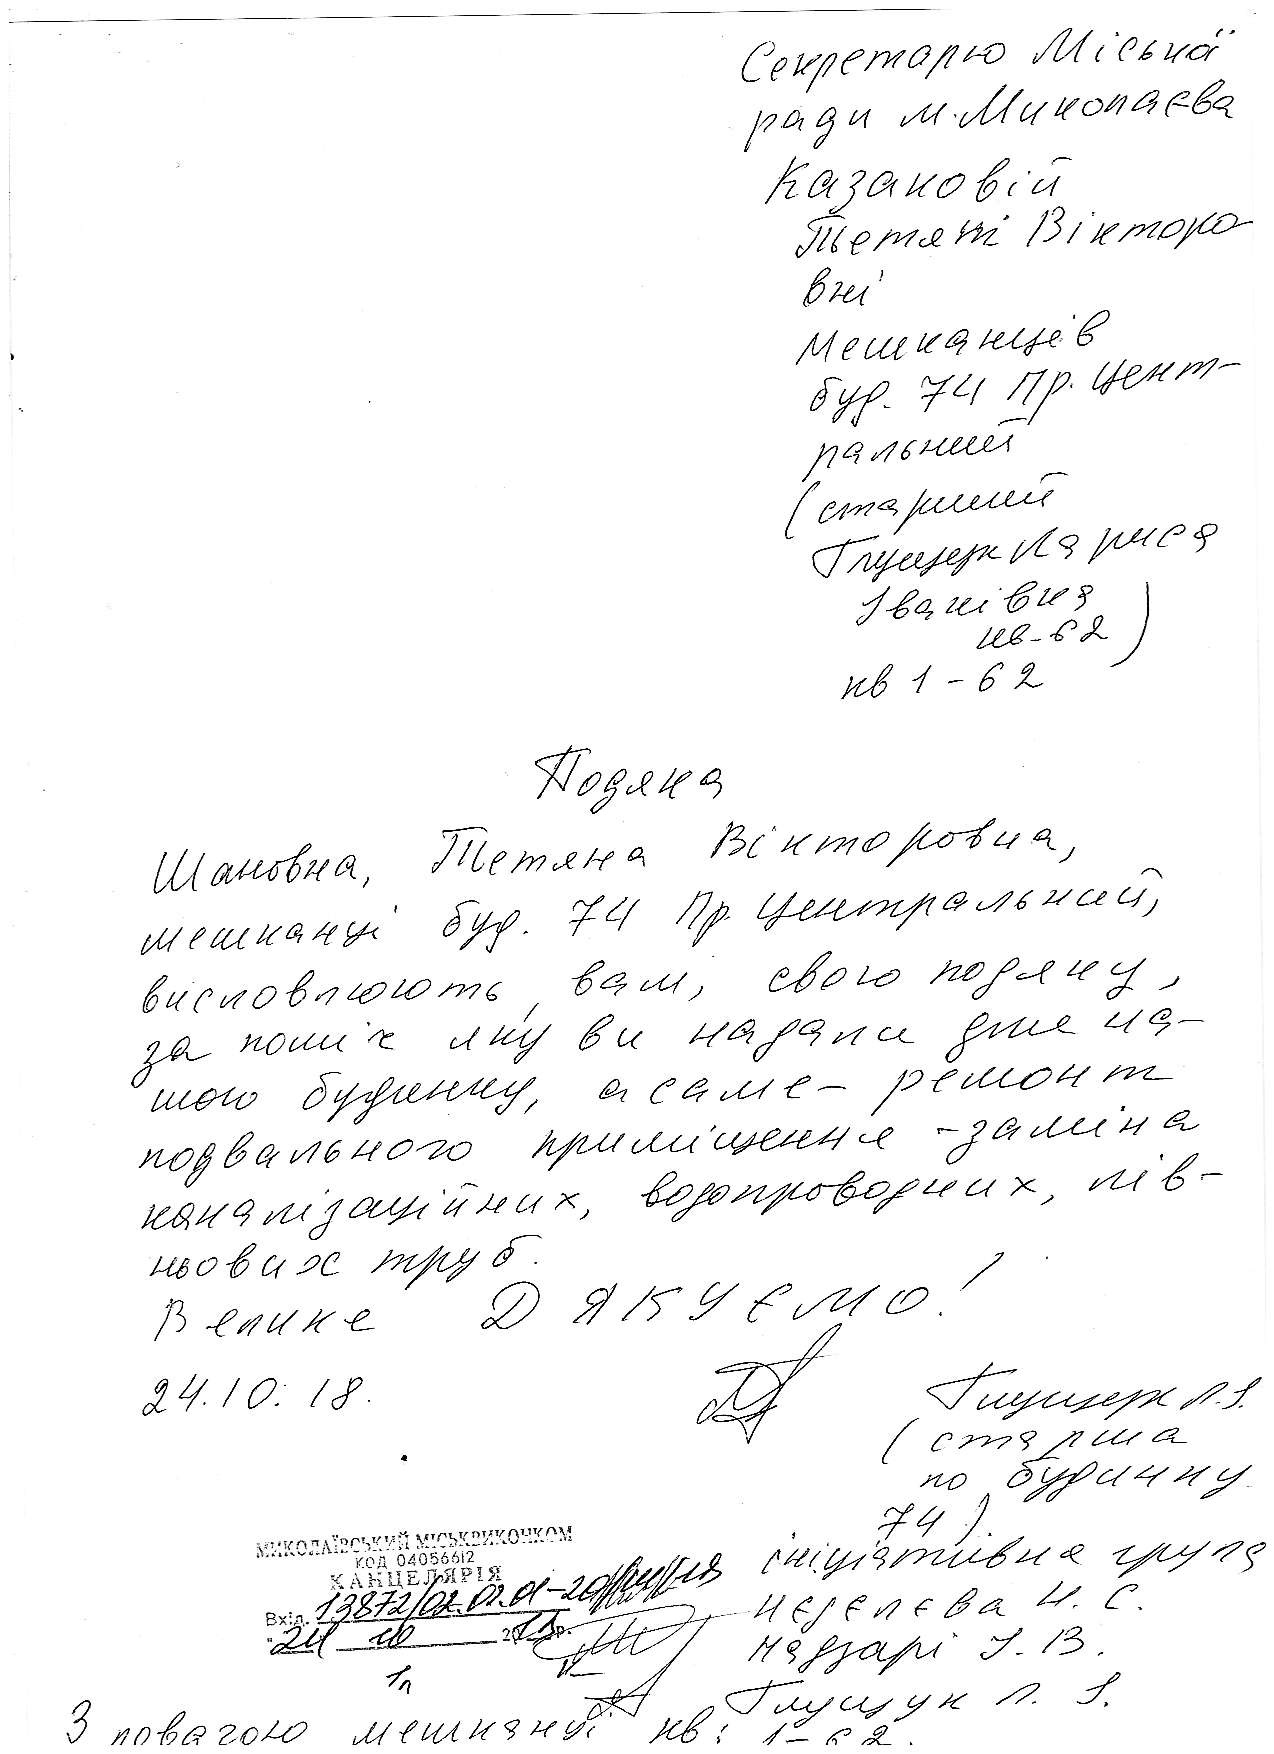 Секретарю Міської
ради м. Миколаєва
Казаковій
Тетяні Викторо
вні
Мешканців
буд. 74 Пр. Цент-
ральний
(старший
Глущук Лариса
Іванівна
кв-62)
кв 1-62
Подяка
Шановна, Тетяна Вікторовна,
мешканці буд. 74 Пр. Центральний,
висловлюють вам, свого подяку,
за поміч яку ви надали для на-
шого будинку, а саме - ремонт
подвального приміщення - заміна
каналізаційних, водопроводних, лів-
ньових труб.
Велике ДЯКУЄМО!
24.10.18.
Глущук Л.І.
(старша
по будинку
74).
МИКОЛАЇВСЬКИЙ МІСЬКВИКОНКОМ
КОД 04056612
КАНЦЕЛЯРІЯ
Вхід. 13872/02.02.01-20
24 10 2018р.
1п
ініціативна група
Неделєва Н. С.
Мадзарі І. В.
Глущук Л. І.
З повагою мешканці кв: 1-62.